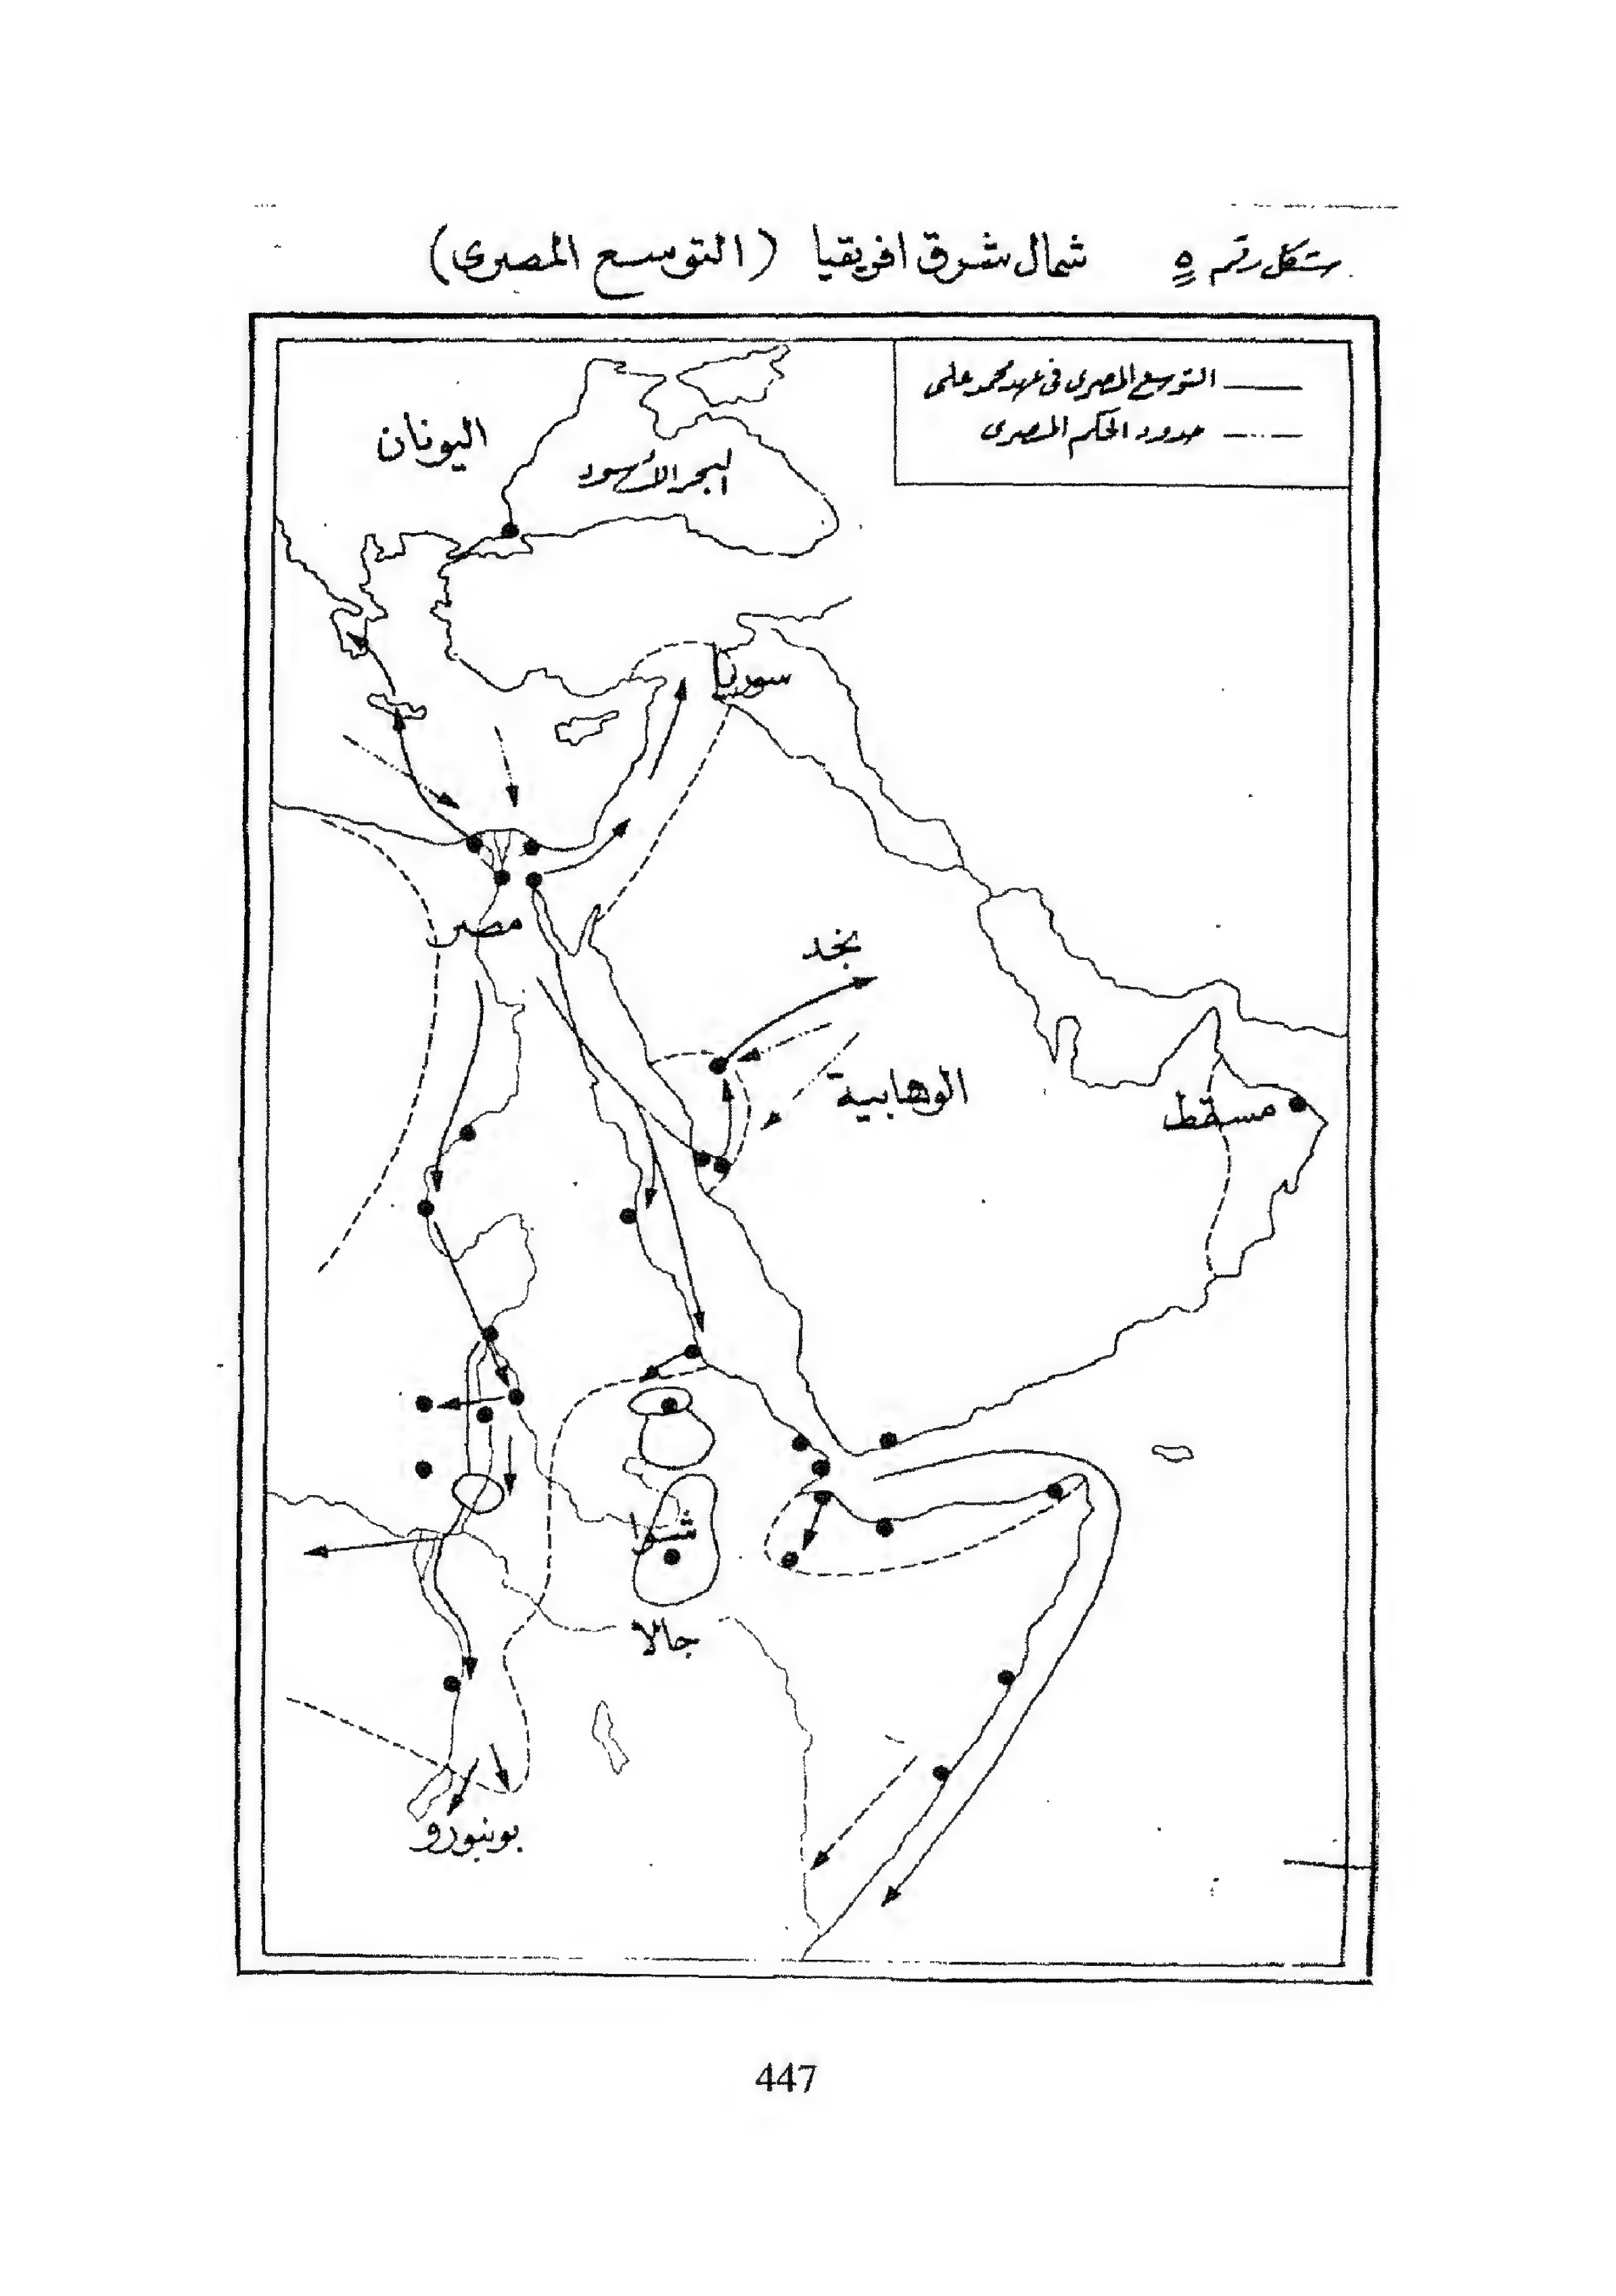 شكل رقم ٥ شمال شرق افريقيا (التوسع المصرى)
التوسع المصرى فى عهد محمد على
حدود الحكم المصرى
اليونان
البحر الأسود
سوريا
مصر
نجد
الوهابية
مسقط
شوا
جالا
بونيورو
447